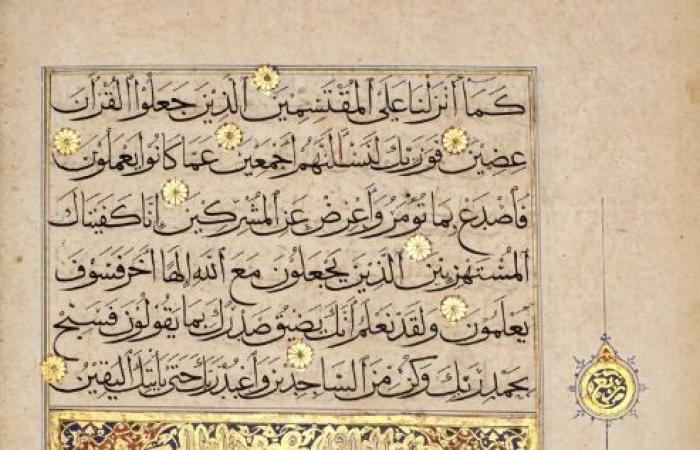 كَمَآ أَنزَلْنَا عَلَى ٱلْمُقْتَسِمِينَ ٱلَّذِينَ جَعَلُوا ٱلْقُرْآنَ
عِضِينَ فَوَرَبِّكَ لَنَسْأَلَنَّهُمْ أَجْمَعِينَ عَمَّا كَانُوا يَعْمَلُونَ
فَٱصْدَعْ بِمَا تُؤْمَرُ وَأَعْرِضْ عَنِ ٱلْمُشْرِكِينَ إِنَّا كَفَيْنَاكَ
ٱلْمُسْتَهْزِءِينَ ٱلَّذِينَ يَجْعَلُونَ مَعَ ٱللَّهِ إِلَهًا آخَرَ فَسَوْفَ
يَعْلَمُونَ وَلَقَدْ نَعْلَمُ أَنَّكَ يَضِيقُ صَدْرُكَ بِمَا يَقُولُونَ فَسَبِّحْ
بِحَمْدِ رَبِّكَ وَكُن مِنَ ٱلسَّاجِدِينَ وَٱعْبُدْ رَبَّكَ حَتَّى يَأْتِيَكَ ٱلْيَقِينُ